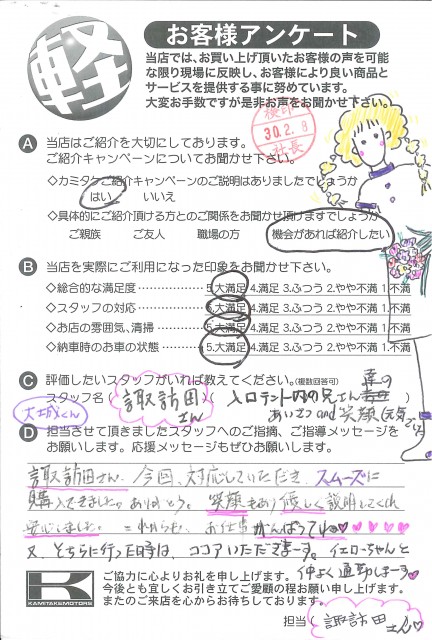 軽
お客様アンケート
当店では、お買い上げ頂いたお客様の声を可能
な限り現場に反映し、お客様により良い商品と
サービスを提供する事に努めています。
大変お手数ですが是非お声をお聞かせ下さい。
検印
30.2.8
社長
A 当店はご紹介を大切にしております。
ご紹介キャンペーンについてお聞かせ下さい。
◇カミタケご紹介キャンペーンのご説明はありましたでしょうか
はい いいえ
◇具体的にご紹介頂ける方とのご関係をお聞かせ頂けますでしょうか
ご親族 ご友人 職場の方 機会があれば紹介したい
B 当店を実際にご利用になった印象をお聞かせ下さい。
◇総合的な満足度 5.大満足 4.満足 3.ふつう 2.やや不満 1.不満
◇スタッフの対応 5.大満足 4.満足 3.ふつう 2.やや不満 1.不満
◇お店の雰囲気、清掃 5.大満足 4.満足 3.ふつう 2.やや不満 1.不満
◇納車時のお車の状態 5.大満足 4.満足 3.ふつう 2.やや不満 1.不満
C 評価したいスタッフがいれば教えてください。(複数回答可)
スタッフ名( 諏訪田さん )( 入口テント内の兄さん )
あいさつand笑顔
大城くん
D 担当させて頂きましたスタッフへのご指摘、ご指導メッセージを
お願いします。応援メッセージもぜひお願いします。
諏訪田さん、今回、対応していただき、スムーズに
購入できました。ありがとう。笑顔もあり優しく説明してくれ
安心しました。これからも、お仕事がんばってね♥♥♥♥♥
又、そちらに行った時は、ココアいただきまーす。イエローちゃんと
仲よく通勤しまーす♥
K
KAMITAKE MOTORS
ご協力に心よりお礼を申し上げます。
今後とも宜しくお引き立てご愛顧の程お願い申し上げます。
またのご来店を心からお待ちしております。
担当( 諏訪田さん♥ )